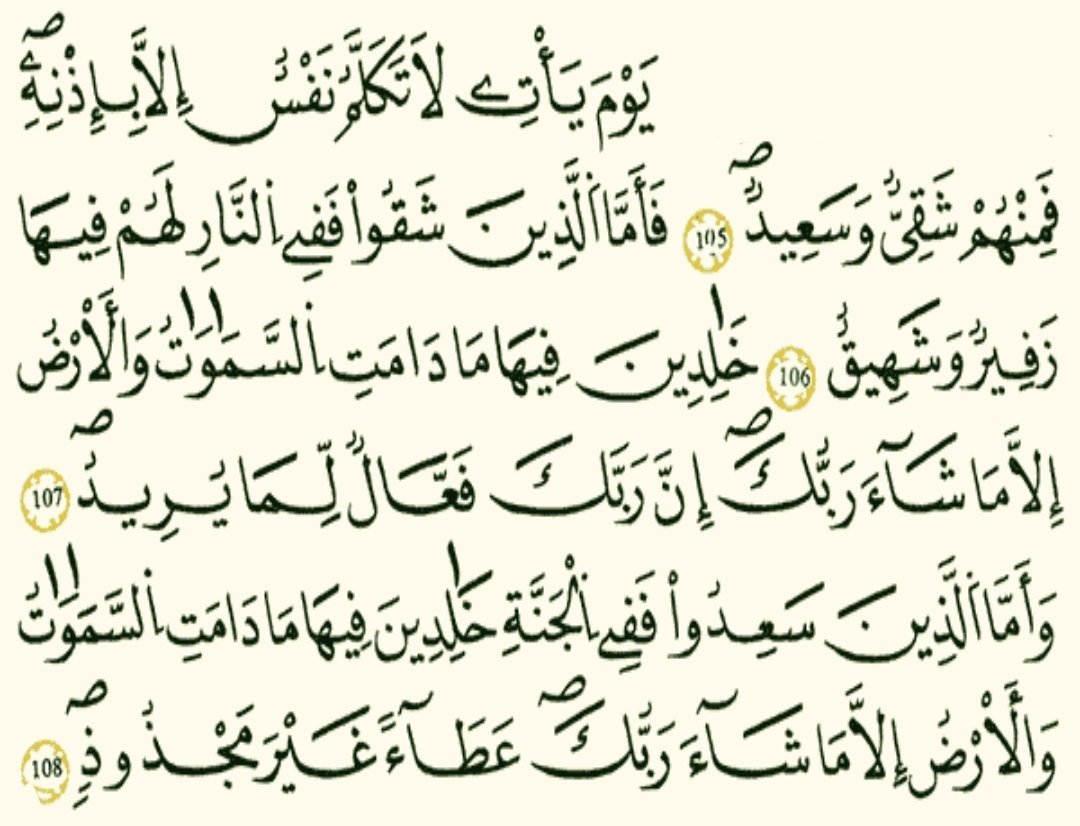 يَوْمَ يَأْتِۦ لَا تَكَلَّمُ نَفْسٌ إِلَّا بِإِذْنِهِۦۖ
فَمِنْهُمْ شَقِيٌّ وَسَعِيدٌۖ 105 فَأَمَّا اَ۬لذِينَ شَقُواْ فَفِے اِ۬لنَّارِ لَهُمْ فِيهَا
زَفِيرٌ وَشَهِيقٌ 106 خَٰلِدِينَ فِيهَا مَا دَامَتِ اِ۬لسَّمَٰوَٰتُ وَالْأَرْضُ
إِلَّا مَا شَآءَ رَبُّكَۖ إِنَّ رَبَّكَ فَعَّالٌ لِّمَا يُرِيدُۖ 107
وَأَمَّا اَ۬لذِينَ سَعِدُواْ فَفِے اِ۬لْجَنَّةِ خَٰلِدِينَ فِيهَا مَا دَامَتِ اِ۬لسَّمَٰوَٰتُ
وَالْأَرْضُ إِلَّا مَا شَآءَ رَبُّكَۖ عَطَآءً غَيْرَ مَجْذُوذٍ 108